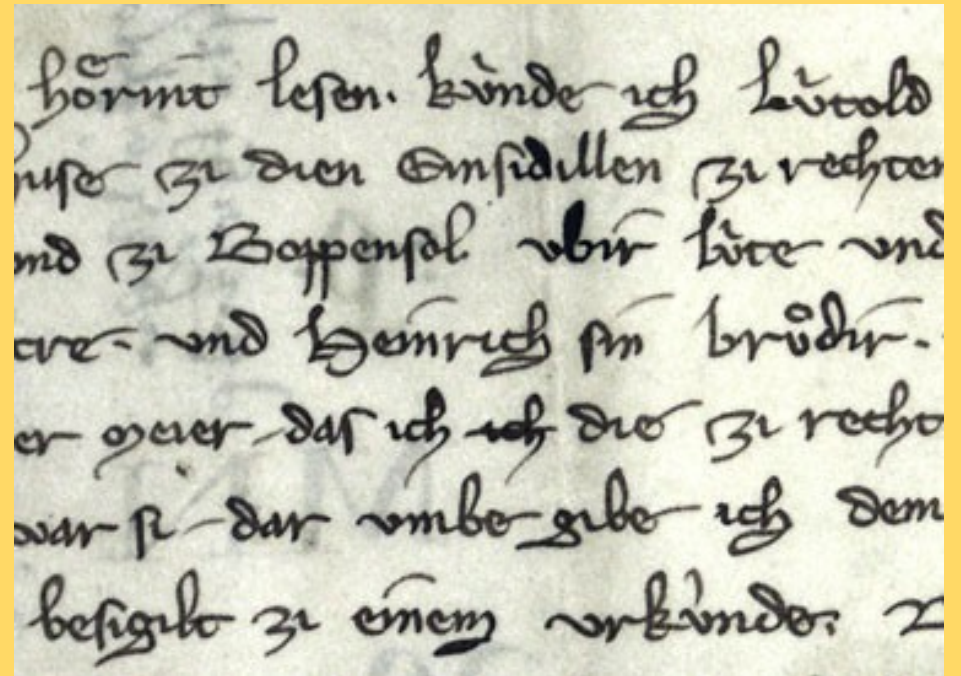 hoͤrint lesen. kùnde ich Lv̍told
huse zi dien Einsidillen zi rechten
und zi Boppensol vbir lv̍te vnd
vnd Heinrich sin brv̊dir.
er meier das ich ich die zi recht
war si dar vmbe gibe ich dem
besigilt zi einem vrkv̍nde.